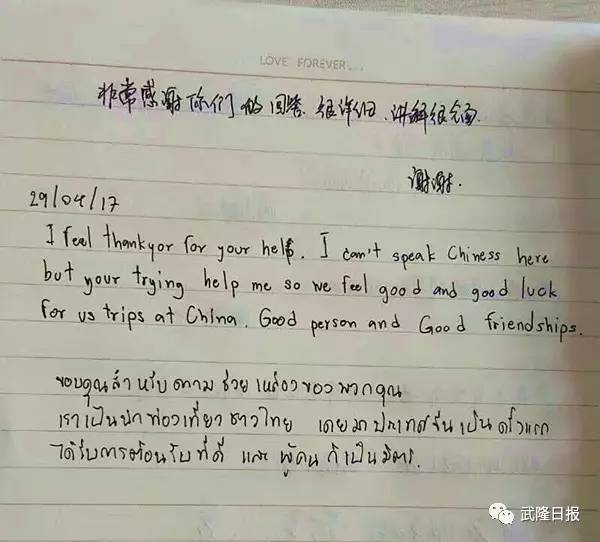 LOVE FOREVER...
非常感谢你们的回答.很详细.讲解很全面.
谢谢.
29/04/17
I feel thankyor for your help. I can't speak Chiness here
but your trying help me so we feel good and good luck
for us trips at China. Good person and Good friendships.
ขอบคุณสำหรับความช่วยเหลือของพวกคุณ
เราเป็นนักท่องเที่ยวชาวไทย เคยมาประเทศจีนเป็นครั้งแรก
ได้รับการต้อนรับที่ดี และ ผู้คน ก็เป็นมิตร.
武隆日报